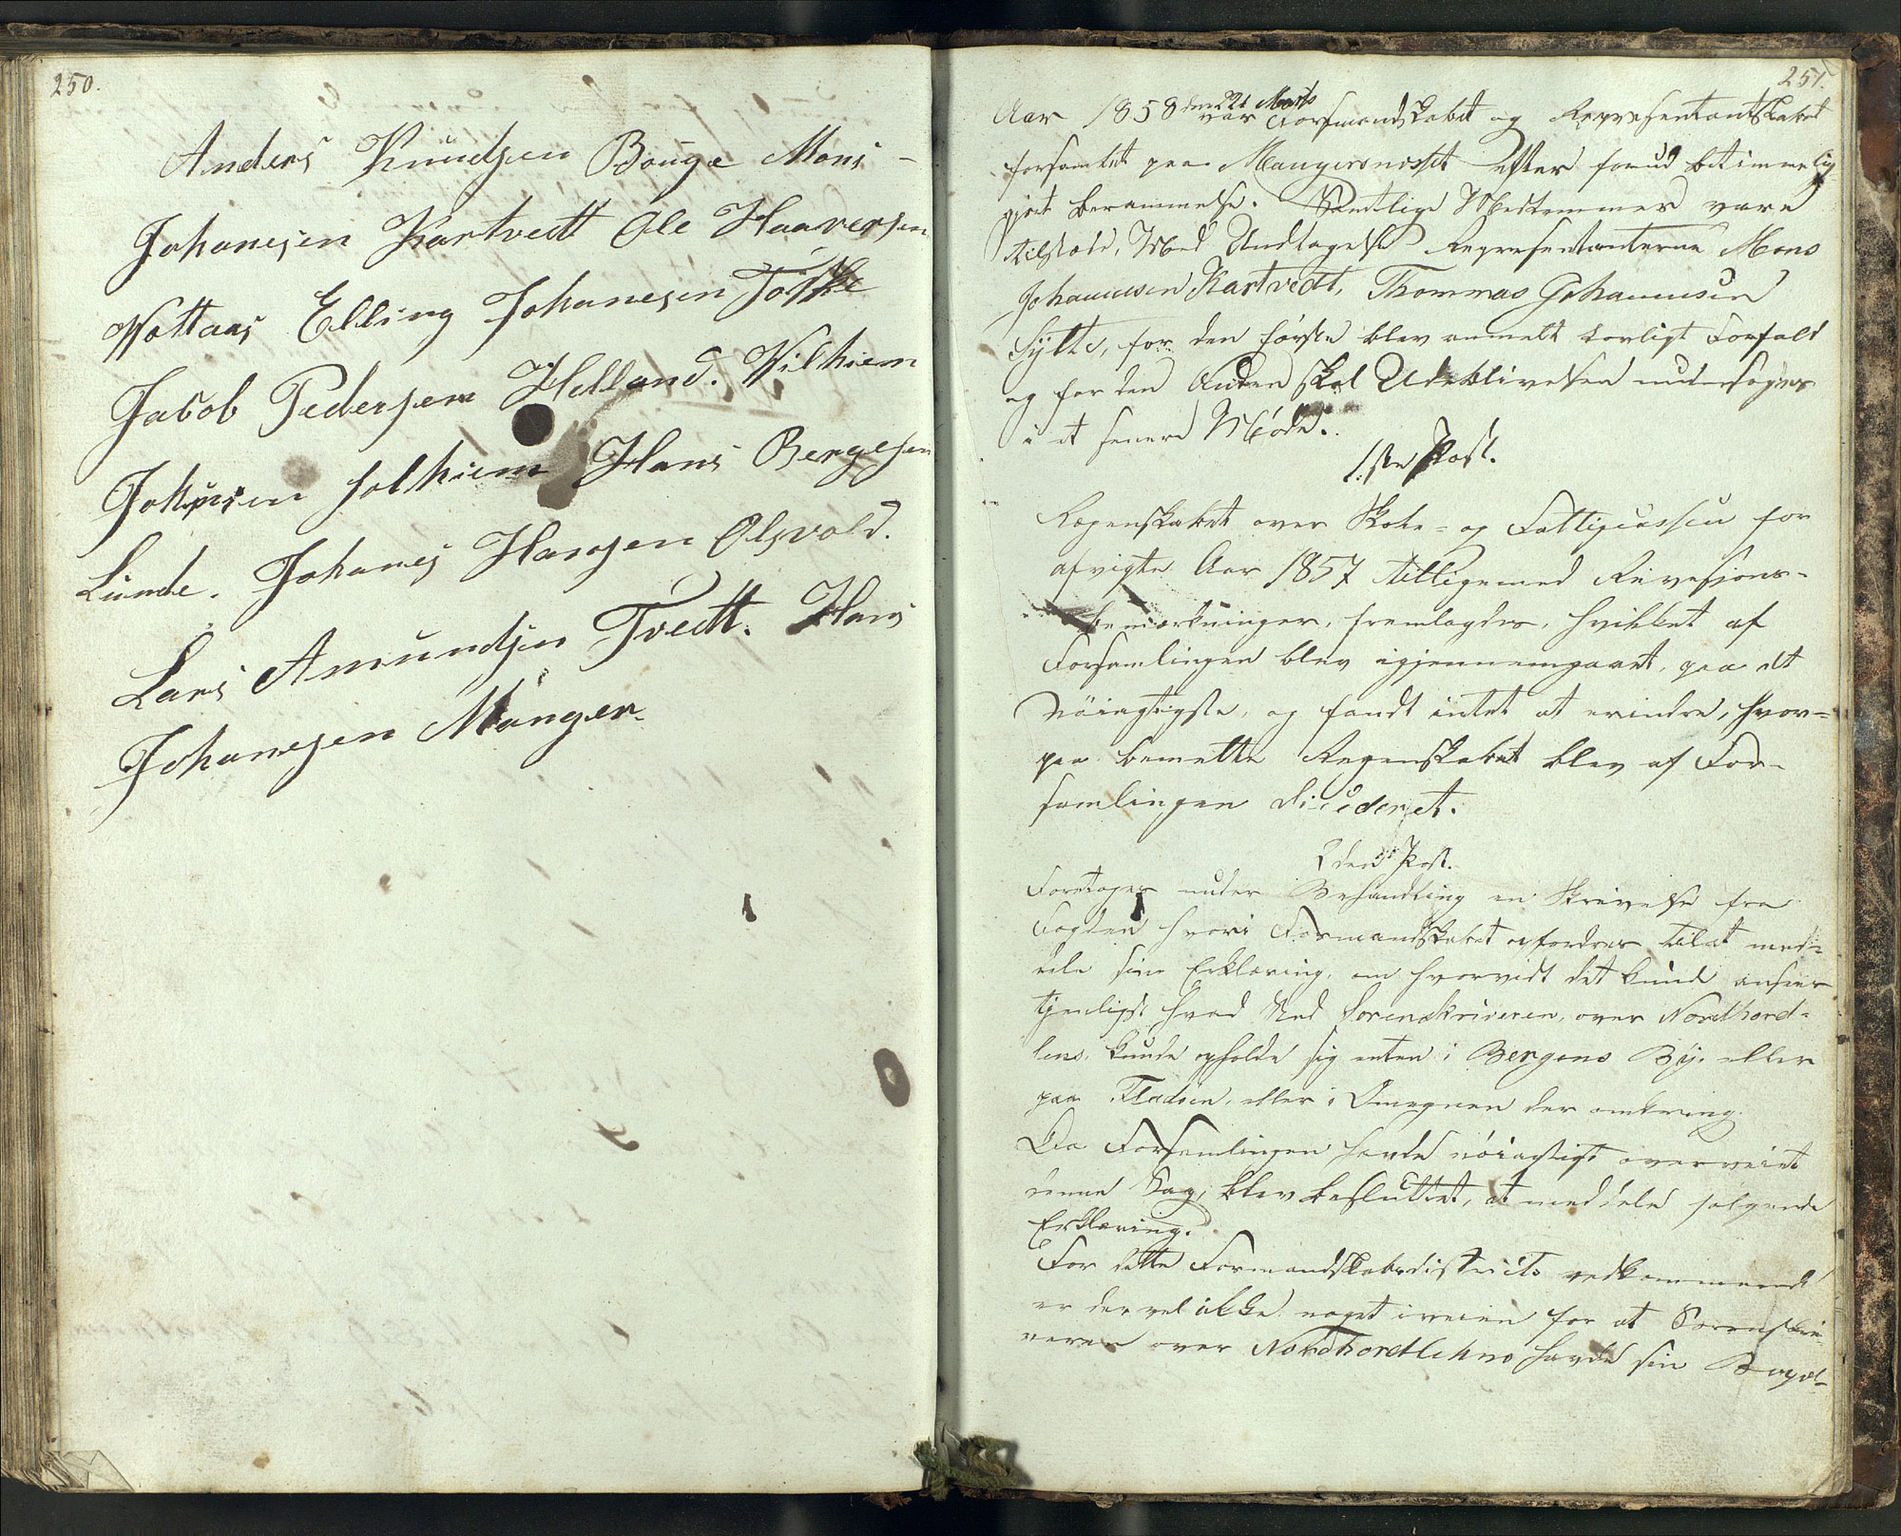 250.
Anders Knudsen Bouge Mons -
Johanesen Kartvedt Ole Haaversen
Nottaas Elling Johanesen Toske
Jacob Pedersen Helland. Vilhiem
Johnsen solhiem Hans Bergesen
Lunde. Johanes Hansen Olsvold.
Lars Amundsen Tvedt. Hans
Johanesen Manger.
251.
Aar 1858 den 22de Marts var Formandskabet og Repræsentantskabet
forsamlet paa Mangersnæsset efter forud betimmelig
gjort berammelse. Samtlige Medlemmer vare
tilstæde, Med Undtagelse Repræsentanterne Mons
Johannesen Kartvedt, Thommas Johannesen
Sylte, for den første blev anmelt lovligt Forfald
og for den Anden skal Udeblivelsen undersøges
i et senere Møde.
1.ste Post.
Regenskabet over Skole- og Fattigcassen for
afvigte Aar 1857 tilligemed Revesjons-
bemærkninger, fremlagdes, hvilket af
Forsamlingen blev igjennemgaaet, paa det
Nöiagtigste, og fandt intet at erindre, hvor-
paa bemelte Regenskabet blev af For-
samlingen Dicideret.
2den Post.
Foretoges under Behandling en Skrivelse fra
Fogden hvori Formandskabet opfordres tilat med-
dele sin Erklæring, om hvorvidt det kunde ansees
tjenligst hvad Sted Sorenskriveren, over Nordhord-
lens, kunde opholde sig enten i Bergens By. eller
paa Fladøen, eller i Omegnen der omkring.
Da Forsamlingen havde nöiagtigt overveiet
denne Sag, blev besluttet, at meddele følgende
Erklæring.
For dette Formandskabsdistricts vedkommende
er der vel ikke noget iveien for at Sorenskri-
veren over Nordhordlehns havde sin Bopæl-